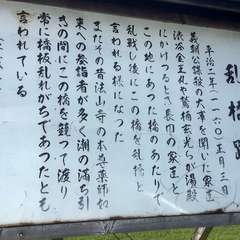 乱橋跡
平治二年(一一六〇)正月三日
義朝公謀殺の大事を聞いた家臣
渋谷金王丸や鷲栖玄光らが湯殿
にかけつけるとき長田の家臣と
この地にあった橋のあたりで
乱戦し後にこの橋を乱橋と
言われる様になった
またその昔法山寺の本尊薬師如
来への参詣者が多く潮の満ち引
きの間にこの橋を競って渡り
常に橋板乱れがちであったとも
言われている